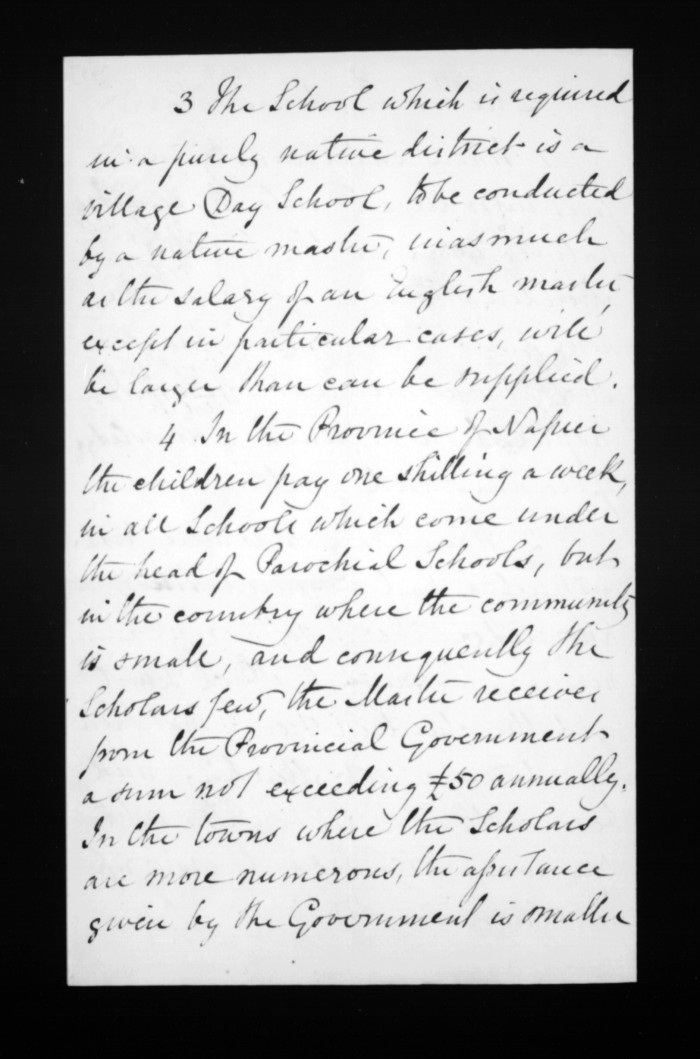 3 The School which is required
in a purely native district is a
village Day School, to be conducted
by a native master, inasmuch
as the salary of an English master
except in particular cases, will
be larger than can be supplied.
4 In the Province of Napier
the children pay one shilling a week,
in all Schools which come under
the head of Parochial Schools, but
in the country where the community
is small, and consequently the
Scholars few, the Master receives
from the Provincial Government
a sum not exceeding £50 annually.
In the towns where the Scholars
are more numerous, the assistance
given by the Government is smaller